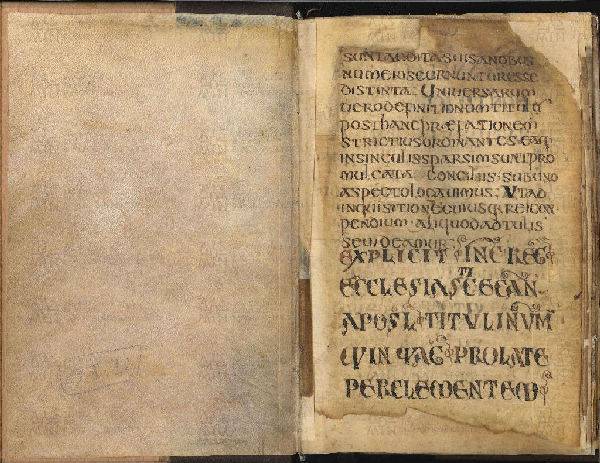 SUNTAGDITASUISANOBUS
NUMERISEURNUNTURESSE
DISTINTA UNIUERSARUM
UERODEFINITIONUMTITULOS
POSTHANCPRÆFATIONEM
STRICTIUSORDINANTES EAQ
INSINGULISSPARSIMSUNTPRO
MULGATA CONCILIIS SUBUNO
ASPECTOLOCAUIMUS UTAD
INQUISITIONEM CUIUSQ REICON
PENDIUM ALIQUODADTULIS
SEUIDEAMUR
EXPLICIT INC REG
ECCLESIASTICE CAN
APOSL TITULI NUM
QUINQUAG PROLATE
PERCLEMENTEM